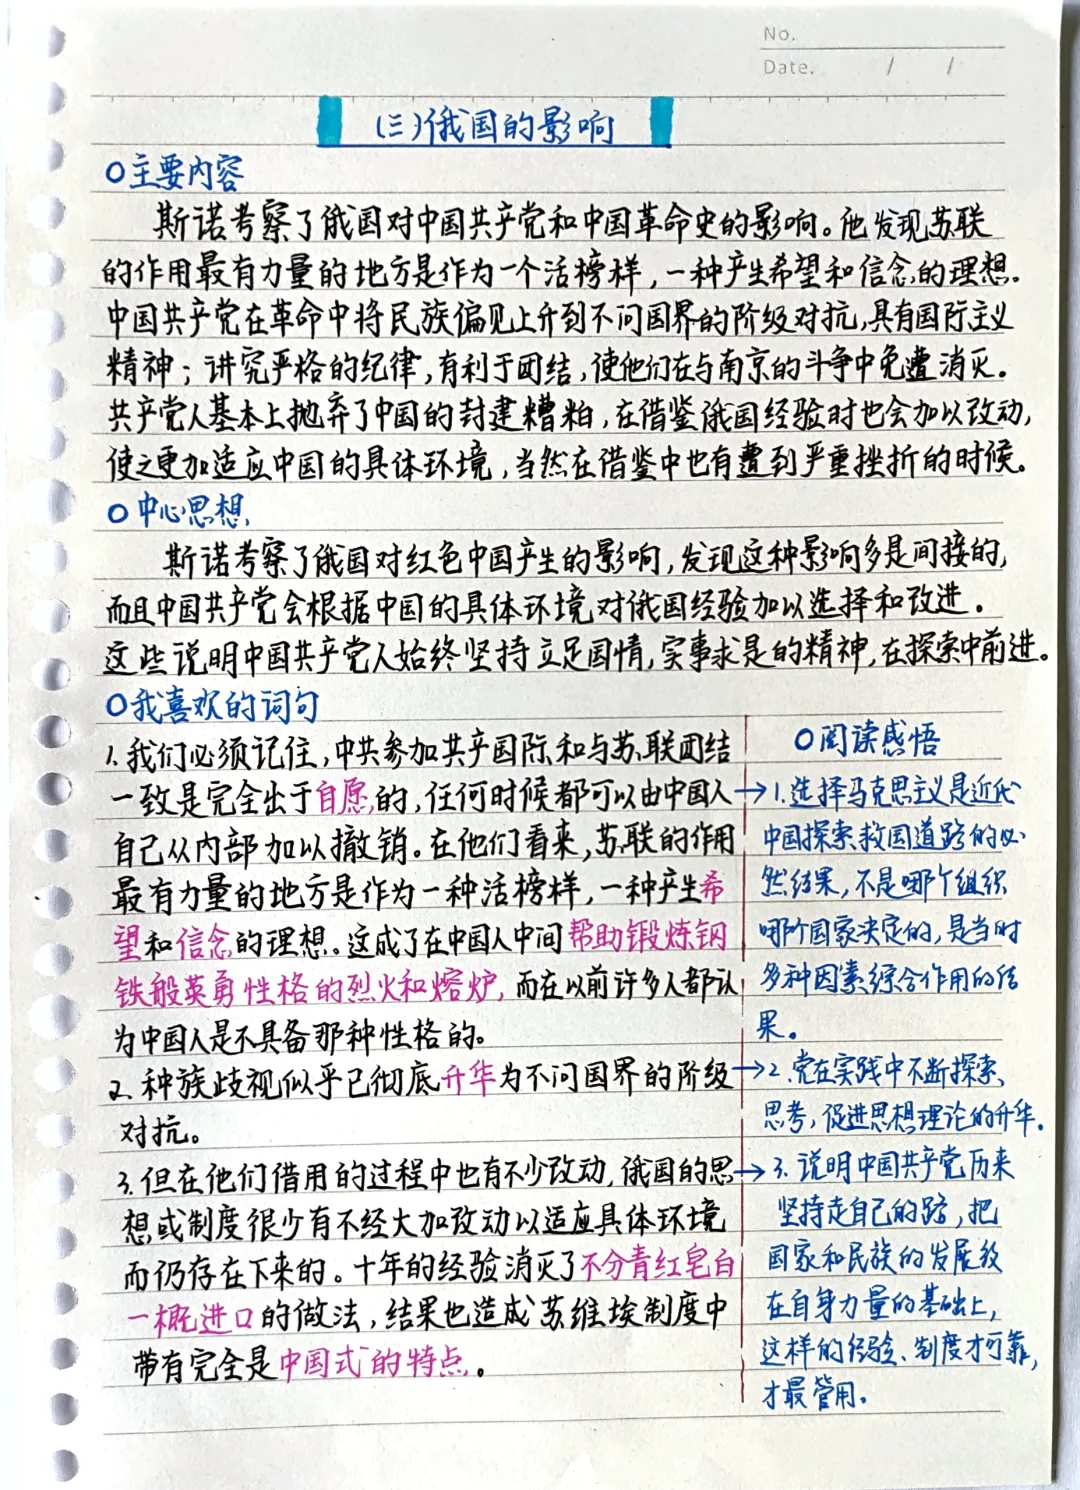 No.
Date. / /
(三)俄国的影响
○主要内容
斯诺考察了俄国对中国共产党和中国革命史的影响。他发现苏联
的作用最有力量的地方是作为一个活榜样,一种产生希望和信念的理想。
中国共产党在革命中将民族偏见上升到不问国界的阶级对抗,具有国际主义
精神;讲究严格的纪律,有利于团结,使他们在与南京的斗争中免遭消灭。
共产党人基本上抛弃了中国的封建糟粕,在借鉴俄国经验时也会加以改动,
使之更加适应中国的具体环境,当然在借鉴中也有遭到严重挫折的时候。
○中心思想
斯诺考察了俄国对红色中国产生的影响,发现这种影响多是间接的,
而且中国共产党会根据中国的具体环境对俄国经验加以选择和改进。
这些说明中国共产党人始终坚持立足国情,实事求是的精神,在探索中前进。
○我喜欢的词句
1.我们必须记住,中共参加共产国际和与苏联团结
一致是完全出于自愿的,任何时候都可以由中国人
自己从内部加以撤销。在他们看来,苏联的作用
最有力量的地方是作为一种活榜样,一种产生希
望和信念的理想。这成了在中国人中间帮助锻炼钢
铁般英勇性格的烈火和熔炉,而在以前许多人都认
为中国人是不具备那种性格的。
2.种族歧视似乎已彻底升华为不问国界的阶级
对抗。
3.但在他们借用的过程中也有不少改动,俄国的思
想或制度很少有不经大加改动以适应具体环境
而仍存在下来的。十年的经验消灭了不分青红皂白
一概进口的做法,结果也造成苏维埃制度中
带有完全是中国式的特点。
○阅读感悟
→1.选择马克思主义是近代
中国探索救国道路的必
然结果,不是哪个组织
哪个国家决定的,是当时
多种因素综合作用的结
果。
→2.党在实践中不断探索、
思考,促进思想理论的升华。
→3.说明中国共产党历来
坚持走自己的路,把
国家和民族的发展放
在自身力量的基础上,
这样的经验、制度才可靠,
才最管用。